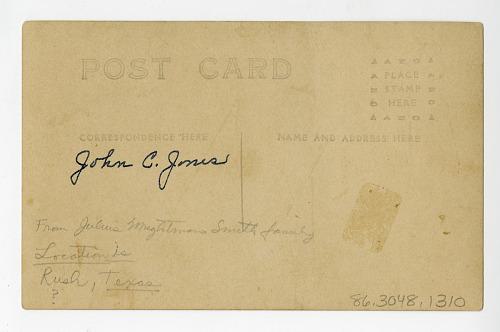 POST CARD
AZO
PLACE
STAMP
HERE
AZO
CORRESPONDENCE HERE
NAME AND ADDRESS HERE
John C. Jones
From Julius Wightman Smith family
Location is
Rusk, Texas
?
86.3048.1310